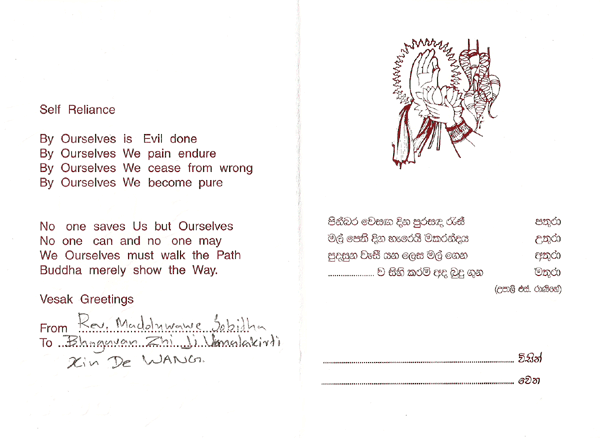 Self Reliance
By Ourselves is Evil done
By Ourselves We pain endure
By Ourselves We cease from wrong
By Ourselves We become pure
No one saves Us but Ourselves
No one can and no one may
We Ourselves must walk the Path
Buddha merely show the Way.
Vesak Greetings
From Rev. Madoluwawe Sobitha
To Bhagavan Zhi Ji Vimalakirti
Xin De WANG.
පින්බර වෙසඟ දින පුරසඳ රැසී පතුරා
මල් පෙති දින හැරෙයි මකරන්දය උතුරා
පුදසුන වැසී යන ලෙස මල් ගෙන අතුරා
...................... ව සිහි කරමි අද බුදු ගුණ මතුරා
(උපාලි එස්. රාණිගේ)
.......................................................... විසින්
.......................................................... වෙත